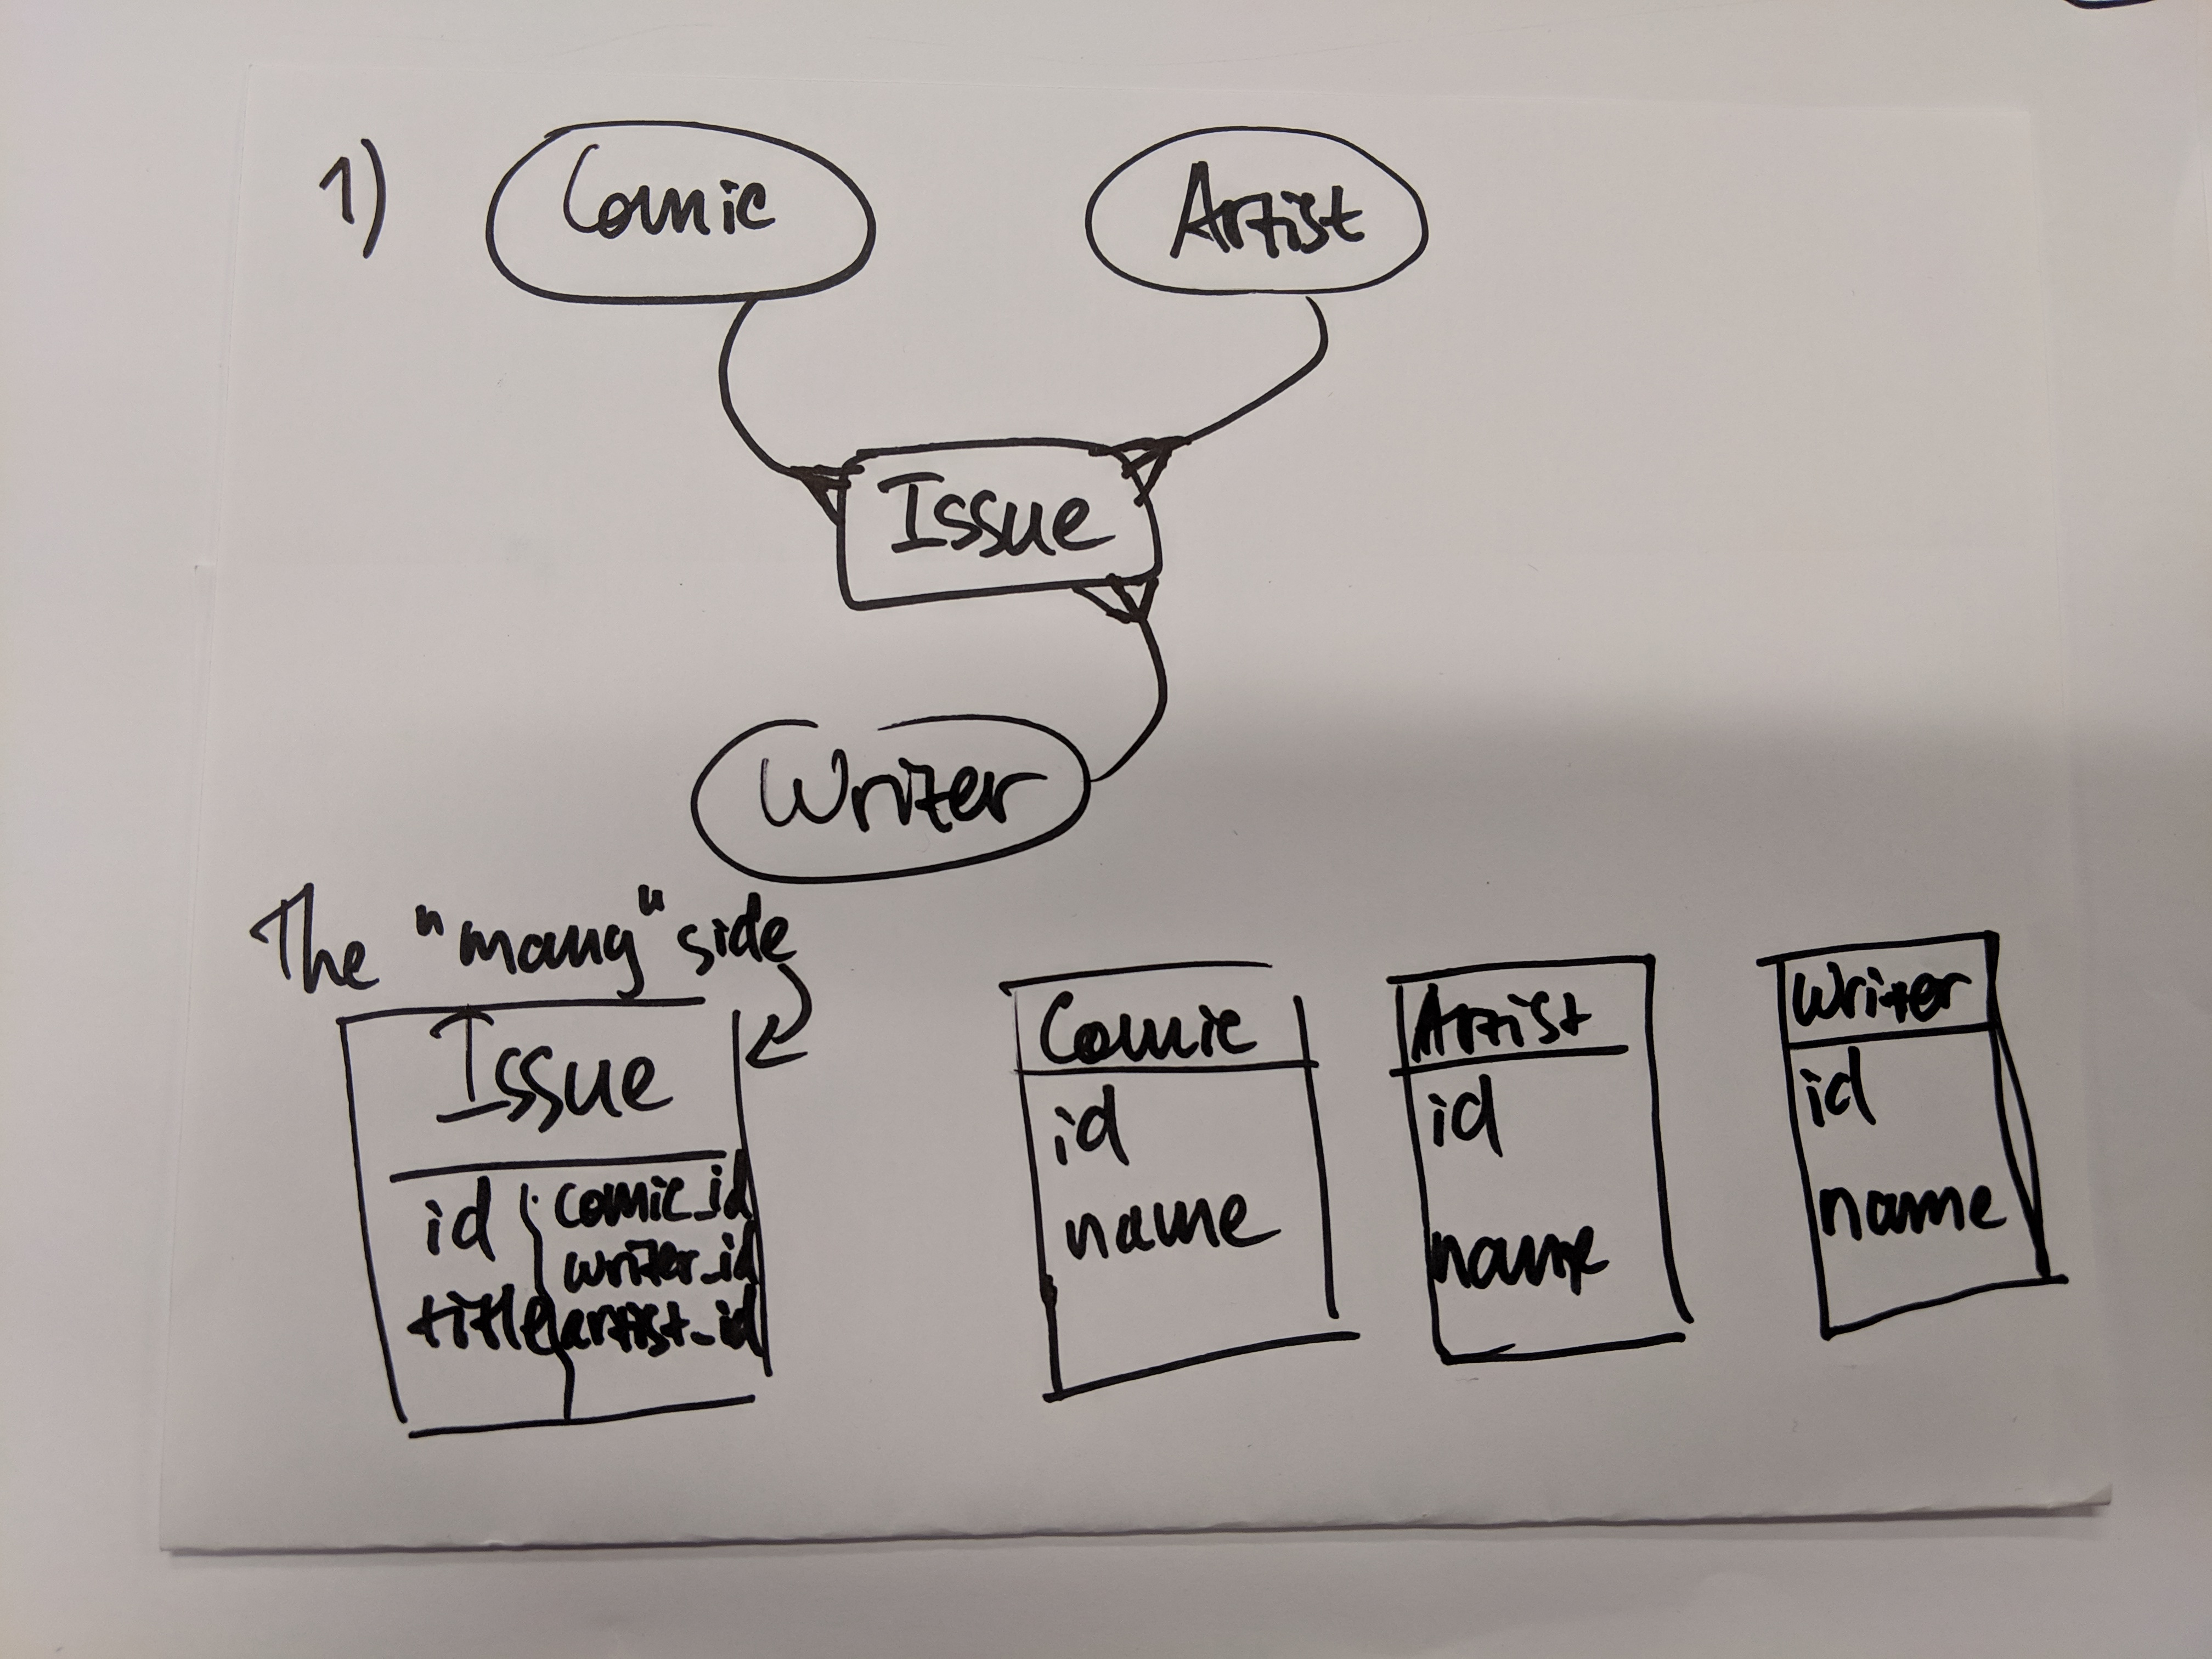 1)
Comic
Artist
Issue
Writer
The "many" side
Issue
id
title
comic_id
writer_id
artist_id
Comic
id
name
Artist
id
name
Writer
id
name